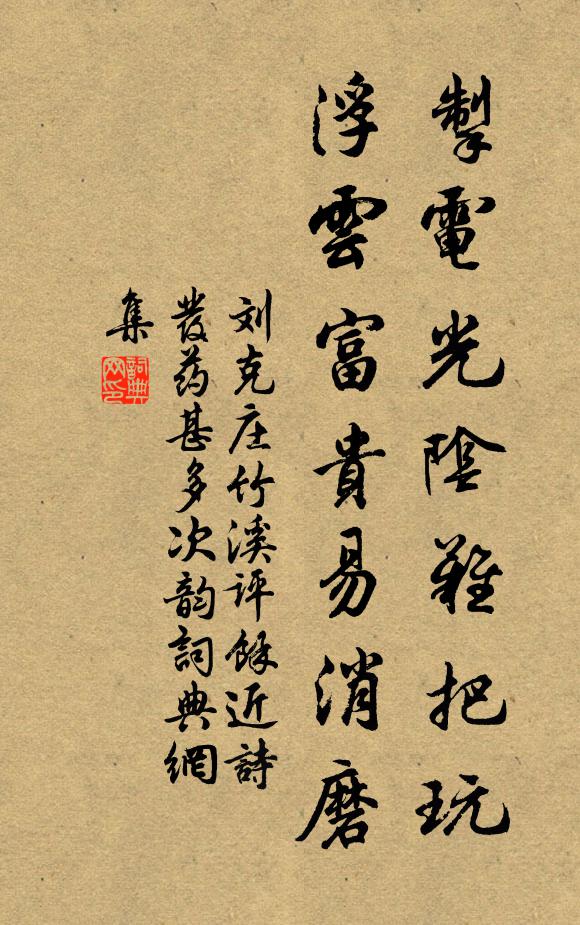 掣電光陰難把玩
浮雲富貴易消磨
刘克庄竹溪评餘近詩
發药甚多次韵詞典網
集
詞典
网印